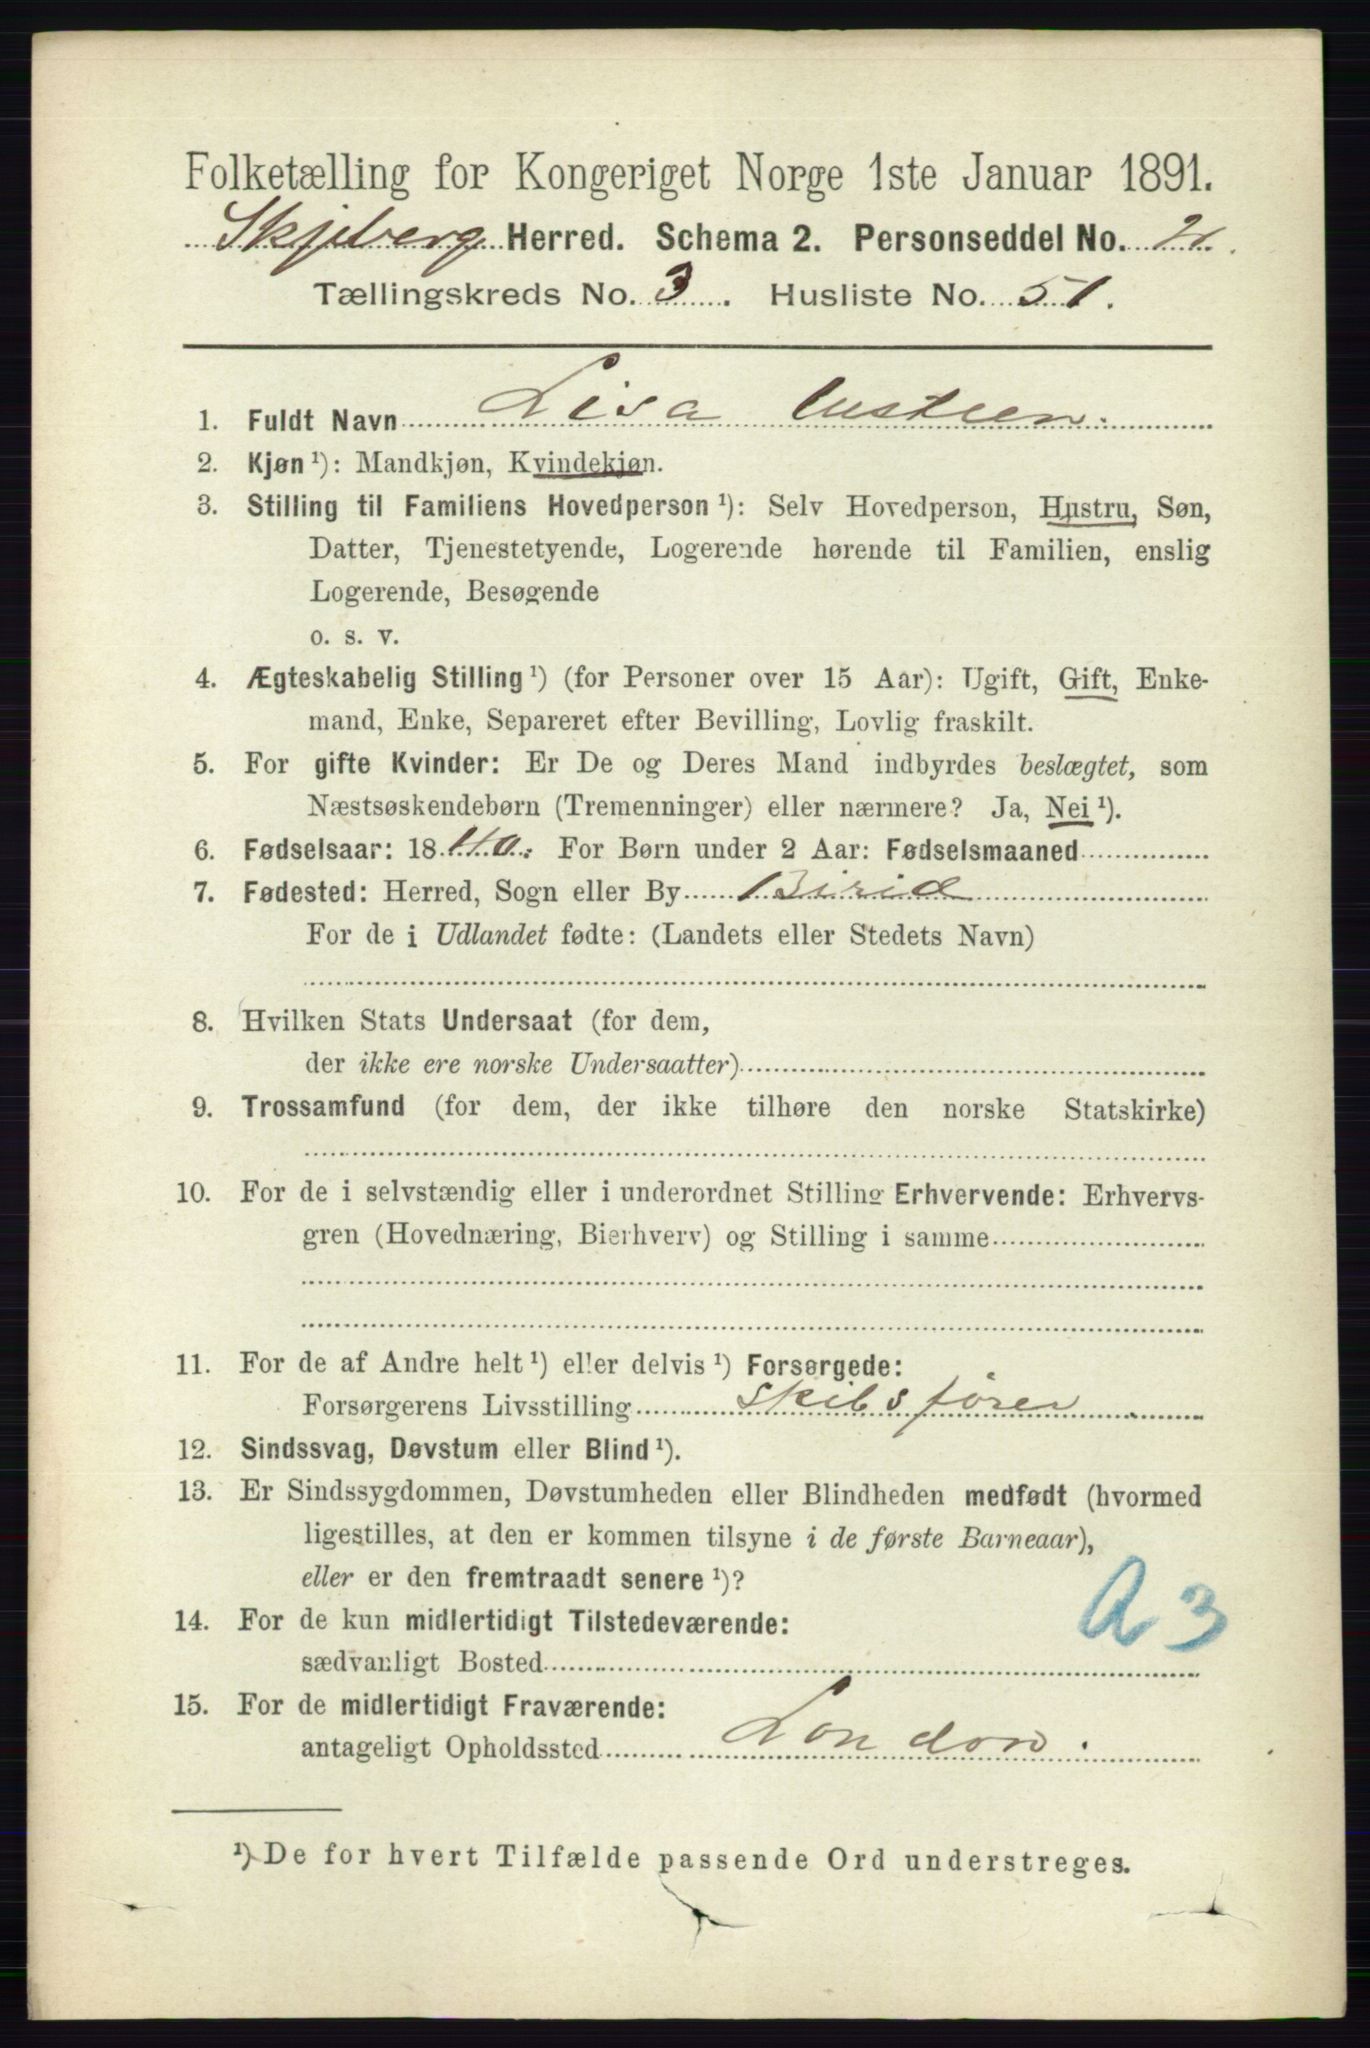 Folketælling for Kongeriget Norge 1ste Januar 1891.
Skjeberg Herred. Schema 2. Personseddel No. 2.
Tællingskreds No. 3. Husliste No. 51.
1. Fuldt Navn Lisa
2. Kjøn ¹): Mandkjøn, Kvindekjøn.
3. Stilling til Familiens Hovedperson ¹): Selv Hovedperson, Hustru, Søn,
Datter, Tjenestetyende, Logerende hørende til Familien, enslig
Logerende, Besøgende
o. s. v.
4. Ægteskabelig Stilling ¹) (for Personer over 15 Aar): Ugift, Gift, Enke-
mand, Enke, Separeret efter Bevilling, Lovlig fraskilt.
5. For gifte Kvinder: Er De og Deres Mand indbyrdes beslægtet, som
Næstsøskendebørn (Tremenninger) eller nærmere? Ja, Nei ¹).
6. Fødselsaar: 1840. For Børn under 2 Aar: Fødselsmaaned
7. Fødested: Herred, Sogn eller By Birid
For de i Udlandet fødte: (Landets eller Stedets Navn)
8. Hvilken Stats Undersaat (for dem,
der ikke ere norske Undersaatter)
9. Trossamfund (for dem, der ikke tilhøre den norske Statskirke)
10. For de i selvstændig eller i underordnet Stilling Erhvervende: Erhvervs-
gren (Hovednæring, Bierhverv) og Stilling i samme
11. For de af Andre helt ¹) eller delvis ¹) Forsørgede:
Forsørgerens Livsstilling Skibsfører
12. Sindssvag, Døvstum eller Blind ¹).
13. Er Sindssygdommen, Døvstumheden eller Blindheden medfødt (hvormed
ligestilles, at den er kommen tilsyne i de første Barneaar),
eller er den fremtraadt senere ¹)?
A 3
14. For de kun midlertidigt Tilstedeværende:
sædvanligt Bosted
15. For de midlertidigt Fraværende:
antageligt Opholdssted London.
¹) De for hvert Tilfælde passende Ord understreges.